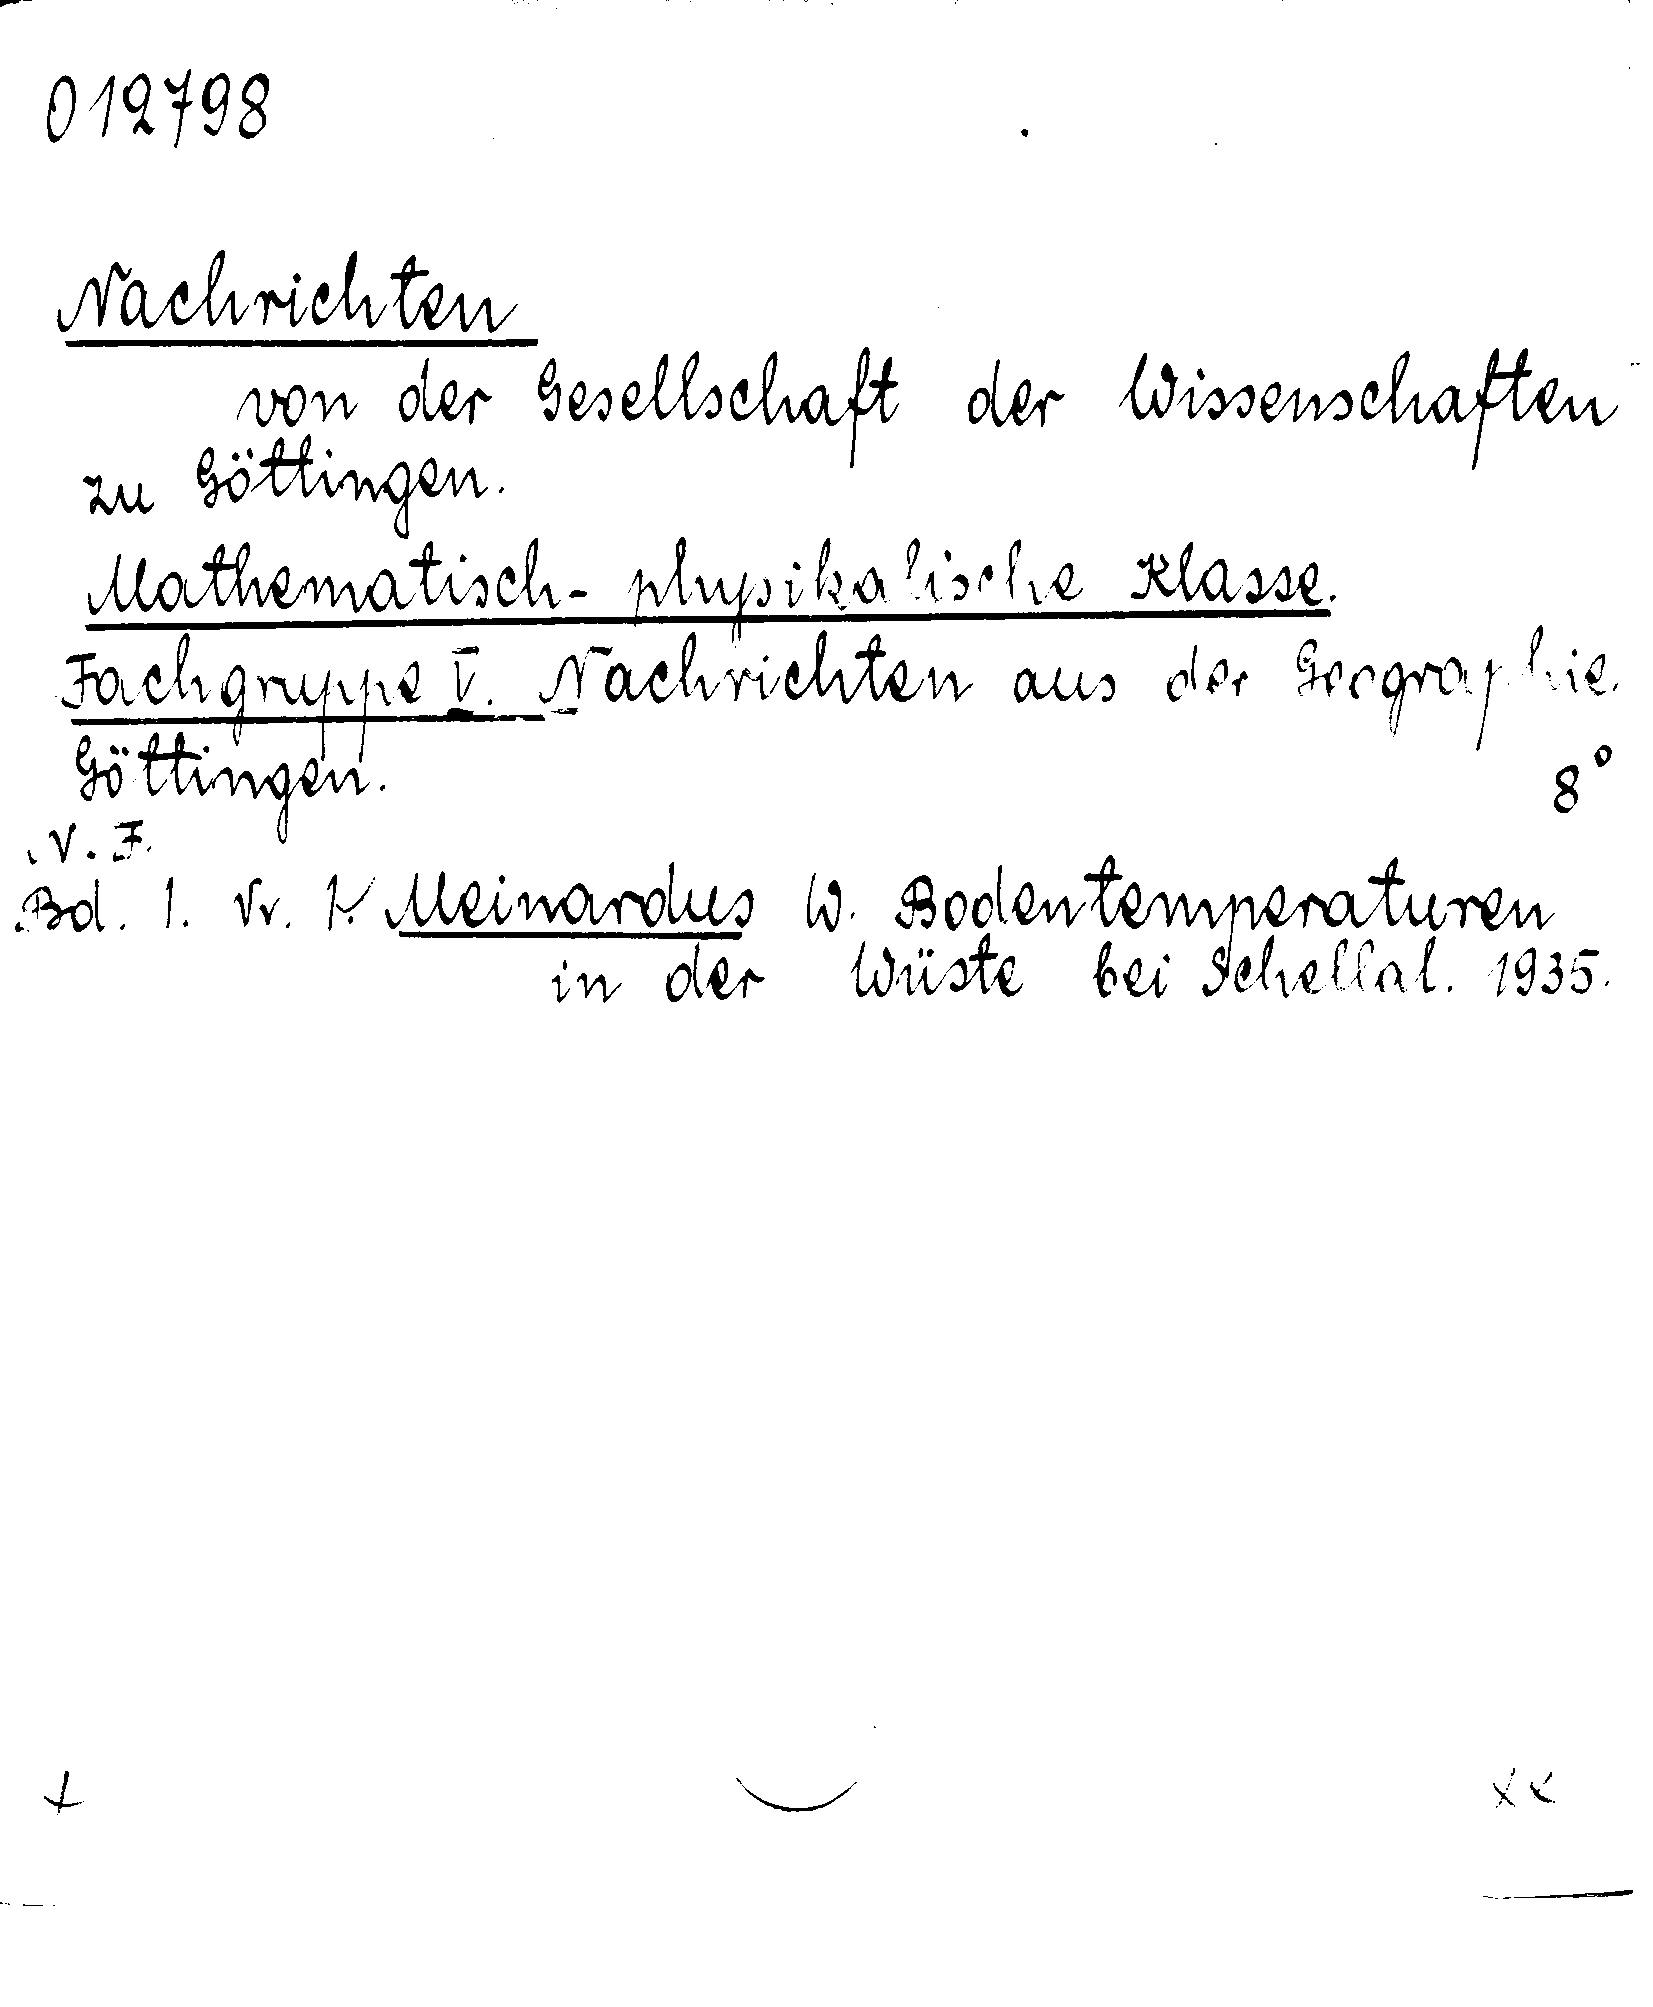 012798
Nachrichten
von der Gesellschaft der Wissenschaften
zu Göttingen.
Mathematisch-physikalische Klasse.
Fachgruppe V. Nachrichten aus der Geographie.
Göttingen. 8°
N. F.
Bd. 1. Nr. 1. Meinardus W. Bodentemperaturen
in der Wüste bei Schellal. 1935.